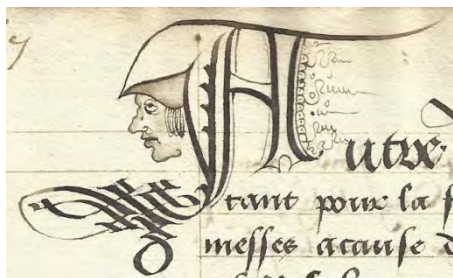 Autre
tant pour la f
messes acause d